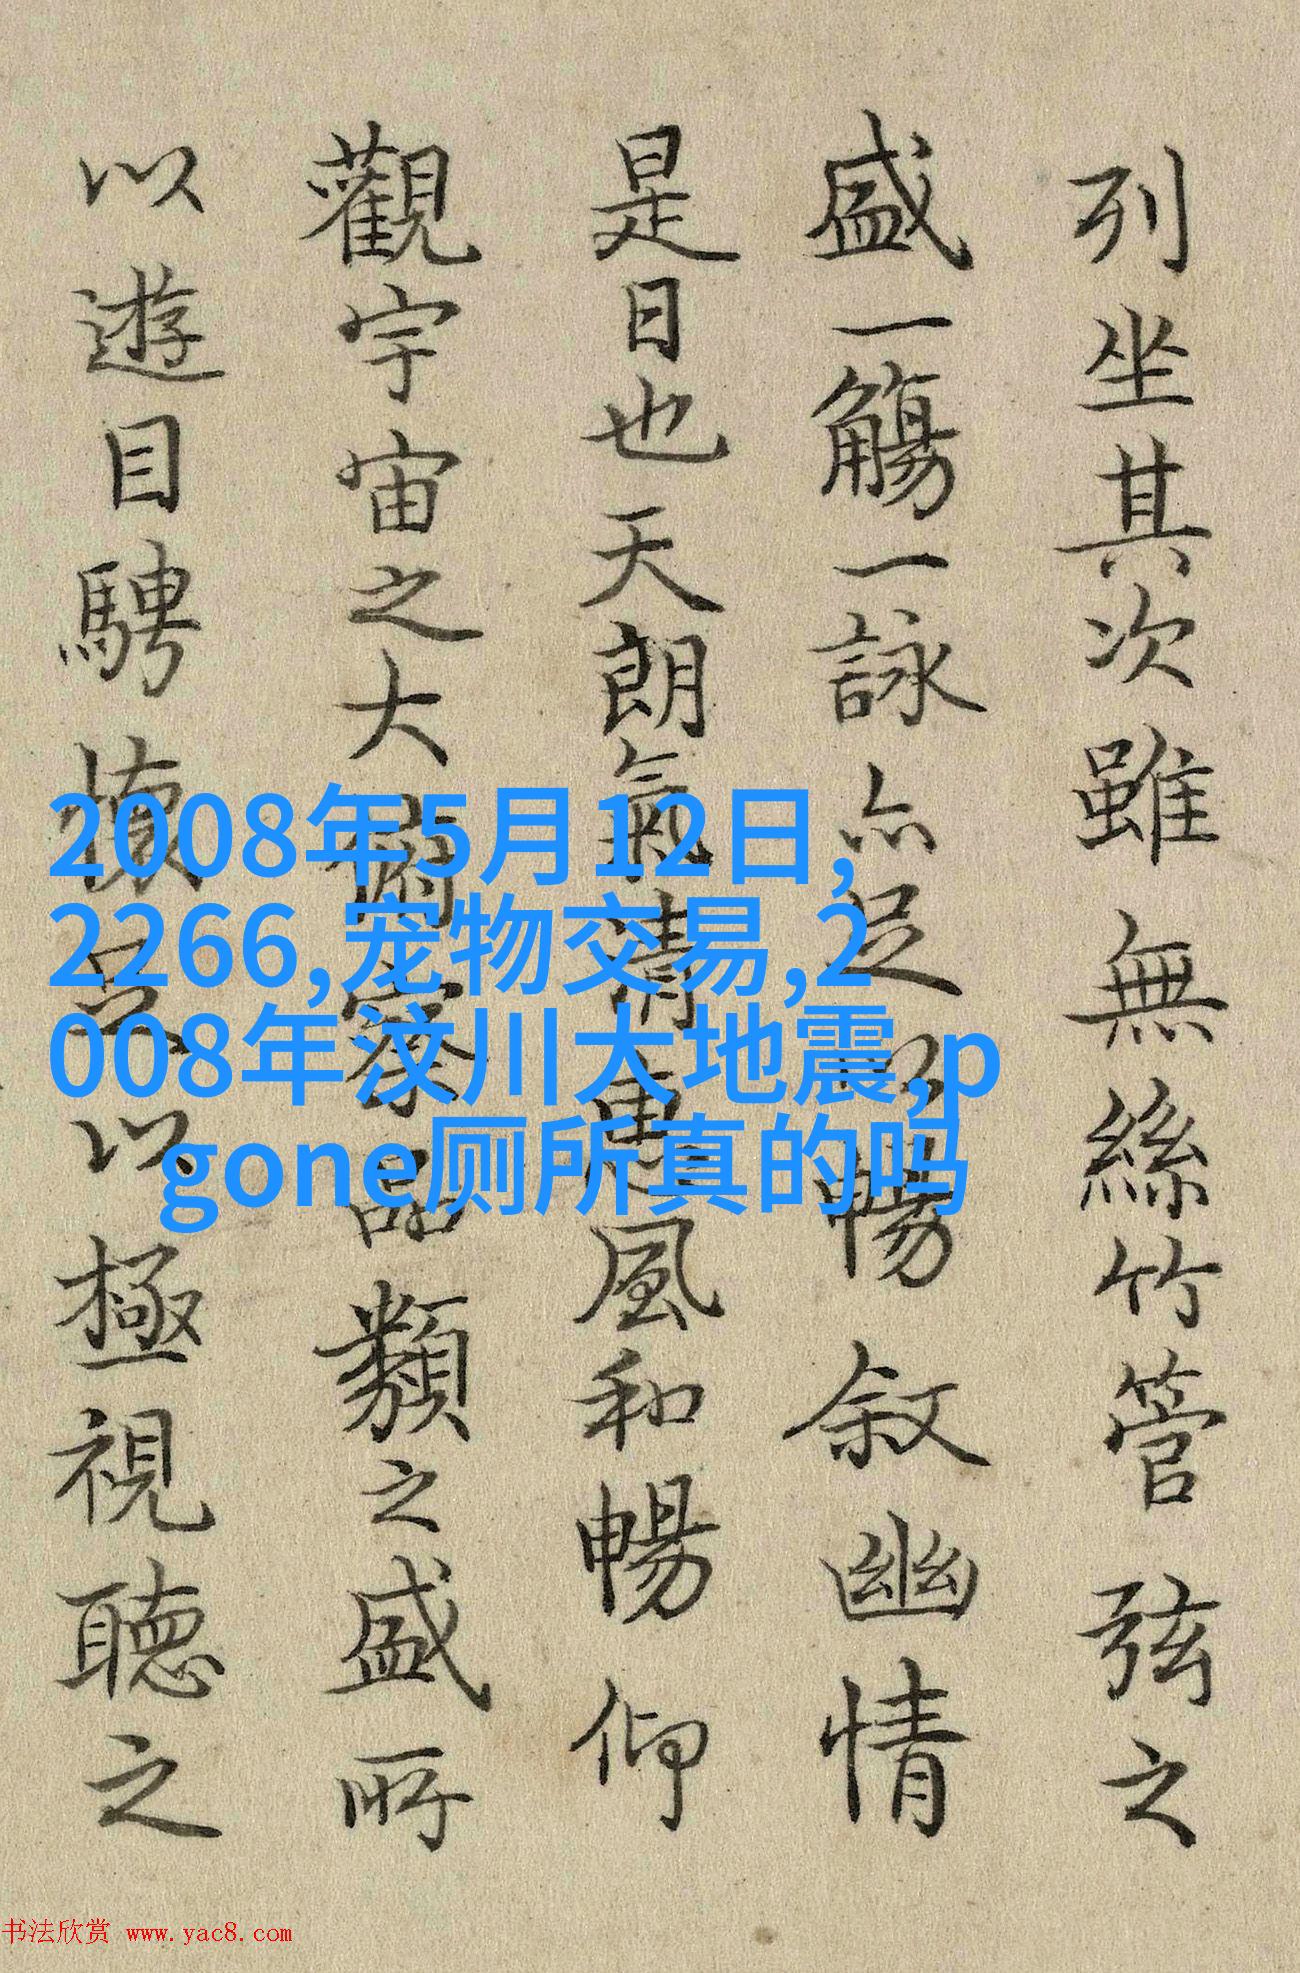 列坐其次雖無絲竹管弦之
盛一觴一詠亦足以暢叙幽情
是日也天朗氣清惠風和暢仰
觀宇宙之大俯察品類之盛所
以遊目騁懷足以極視聽之
2008年5月12日,
2266,宠物交易,2
008年汶川大地震,p
gone厕所真的吗
书法欣赏 www.yac8.com